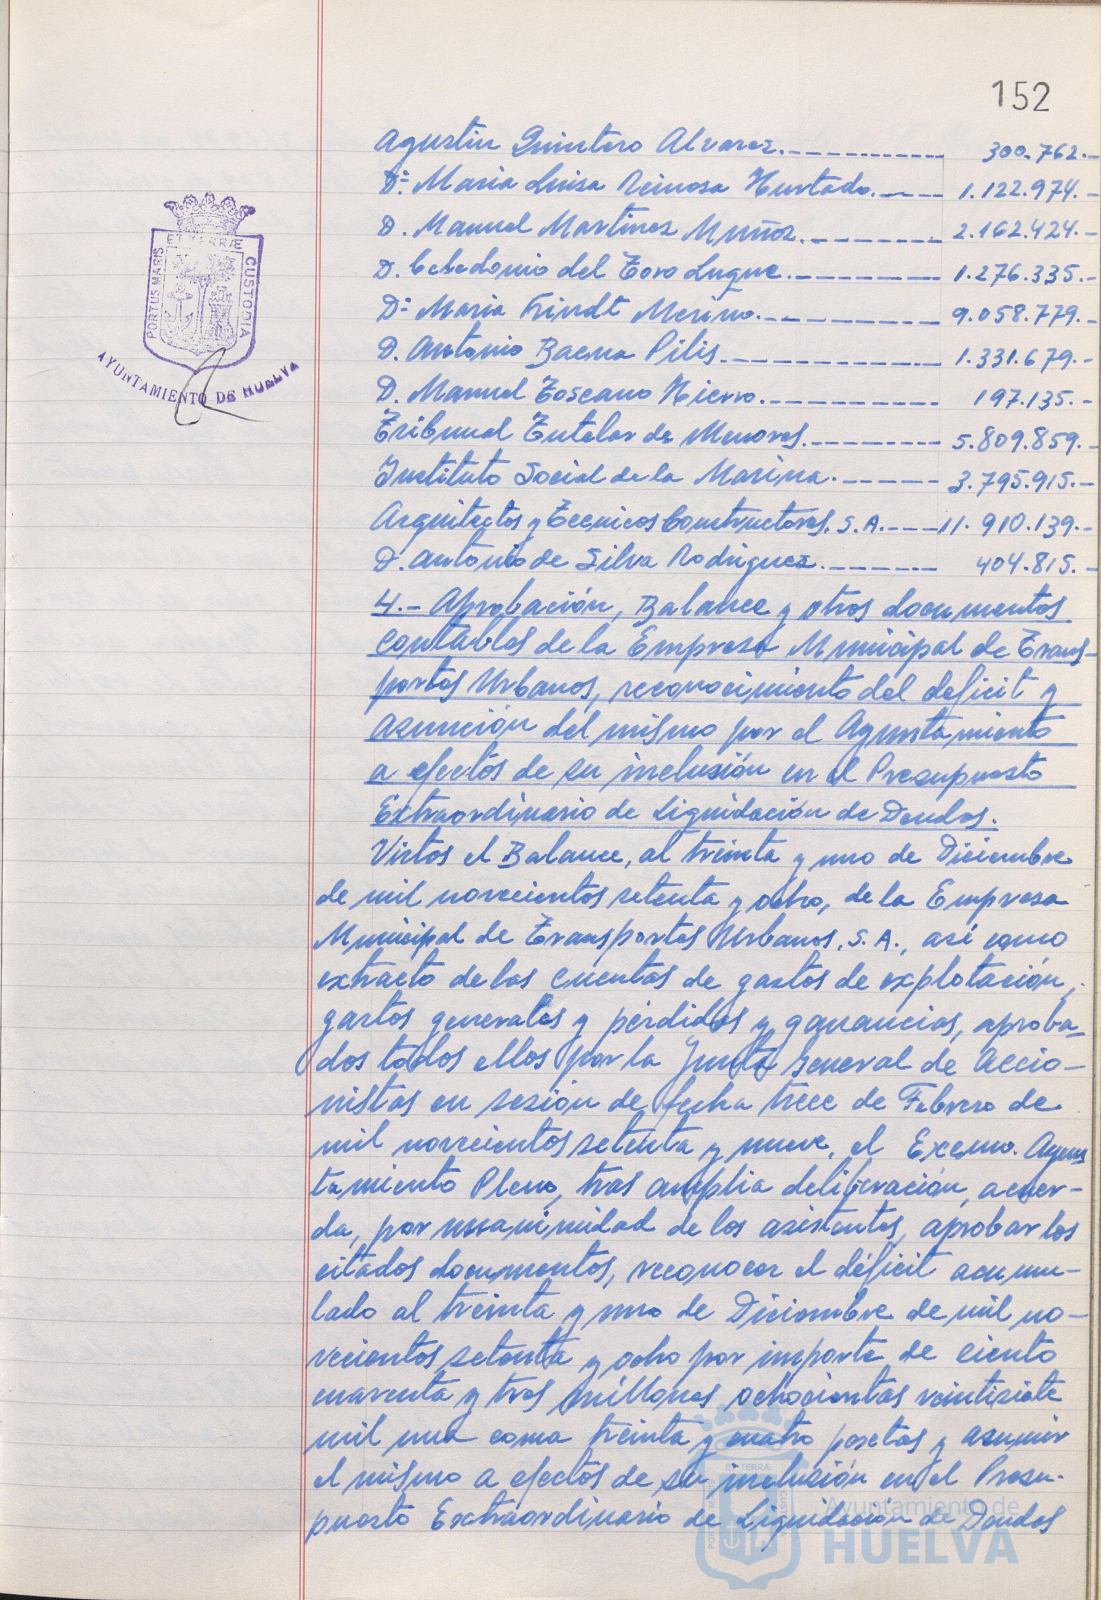 152
Agustin Quintero Alvarez. 300.762.-
Dª Maria Luisa Reinosa Hurtado. 1.122.974.-
D. Manuel Martinez Muñoz. 2.162.424.-
D. Celedonio del Toro Luque. 1.276.335.-
Dª Maria Frindt Merino. 9.058.779.-
D. Antonio Baena Pilis. 1.331.679.-
D. Manuel Toscano Hierro. 197.135.-
Tribunal Tutelar de Menores. 5.809.859.-
Instituto Social de la Marina. 3.795.915.-
Arquitectos y Tecnicos Constructores. S.A. 11.910.139.-
D. Antonio de Silva Rodriguez. 404.815.-
4.- Aprobación, Balance y otros documentos
contables de la Empresa Municipal de Trans-
portes Urbanos, reconocimiento del deficit y
asunción del mismo por el Ayuntamiento
a efectos de su inclusión en el Presupuesto
Extraordinario de Liquidación de Deudas.
Vistos el Balance, al treinta y uno de Diciembre
de mil novecientos setenta y ocho, de la Empresa
Municipal de Transportes Urbanos, S.A., asi como
extracto de las cuentas de gastos de explotación,
gastos generales y pérdidas y ganancias, aproba-
dos todos ellos por la Junta General de Accio-
nistas en sesión de fecha trece de Febrero de
mil novecientos setenta y nueve, el Excmo. Ayun
tamiento Pleno, tras amplia deliberación, acuer-
da, por unanimidad de los asistentes, aprobar los
citados documentos, reconocer el déficit acumu-
lado al treinta y uno de Diciembre de mil no-
vecientos setenta y ocho por importe de ciento
cuarenta y tres millones ochocientas veintisiete
mil una coma treinta y cuatro pesetas y asumir
el mismo a efectos de su inclusión en el Presu-
puesto Extraordinario de Liquidación de Deudas
PORTUS MARIS
ET TERRÆ
CUSTODIA
AYUNTAMIENTO DE HUELVA
Ayuntamiento de
HUELVA